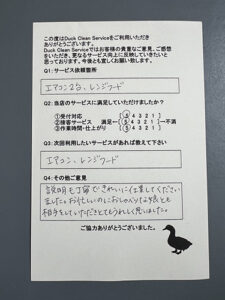 この度はDuck Clean Serviceをご利用いただき
ありがとうございます。
Duck Clean Serviceではお客様の貴重なご意見、ご感想
をいただき、更なるサービス向上に反映していきたいと
思っております。今後とも宜しくお願い致します。
Q1:サービス依頼箇所
エアコン2台、レンジフード
Q2:当店のサービスに満足していただけましたか？
①受付対応 5 4 3 2 1
②接客サービス 満足←5 4 3 2 1→不満
③作業時間・仕上がり 5 4 3 2 1
Q3:次回利用したいサービスがあれば教えて下さい
エアコン、レンジフード
Q4:その他ご意見
説明も丁寧できれいに仕上げてください
ました。お忙しいのにおしゃべりな娘とも
相手をしていただきとてもうれしく思いました。
ご協力ありがとうございました。